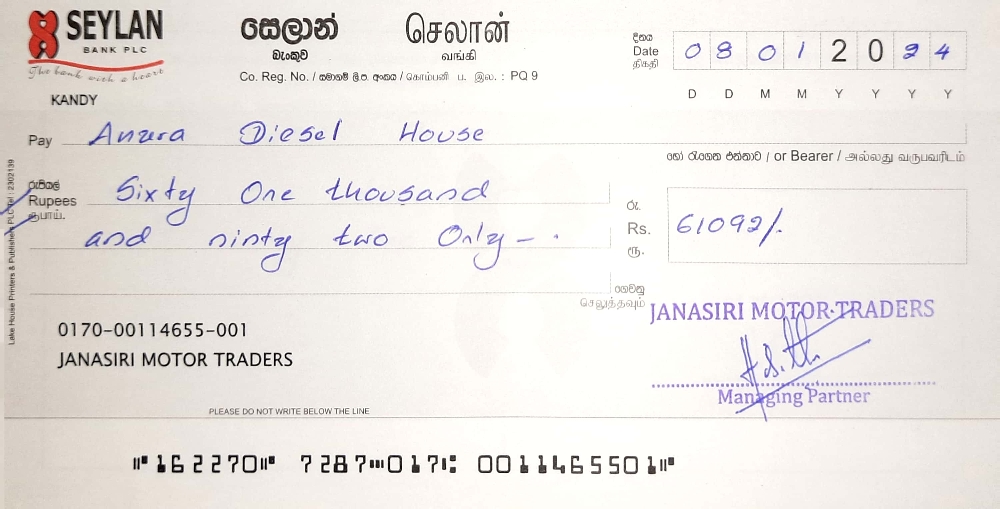 SEYLAN
BANK PLC
The bank with a heart
KANDY
සෙලාන් செலான்
බැංකුව வங்கி
Co. Reg. No. / සමාගම් ලි.ප. අංකය / கொம்பனி ப. இல. : PQ 9
දිනය
Date
திகதி
0 8 0 1 2 0 2 4
D D M M Y Y Y Y
Pay Anura Diesel House
හෝ රැගෙන එන්නාට / or Bearer / அல்லது வருபவரிடம்
රුපියල්
Rupees
ரூபாய்.
Sixty One thousand
and ninty two Only – .
රු.
Rs.
ரூ.
61092/.
ගෙවනු
செலுத்தவும்
Lake House Printers & Publishers PLC Tel : 2302139
0170-00114655-001
JANASIRI MOTOR TRADERS
JANASIRI MOTOR TRADERS
Managing Partner
PLEASE DO NOT WRITE BELOW THE LINE
⑈162270⑈ 7287⑉017⑆ 001146550 1⑈